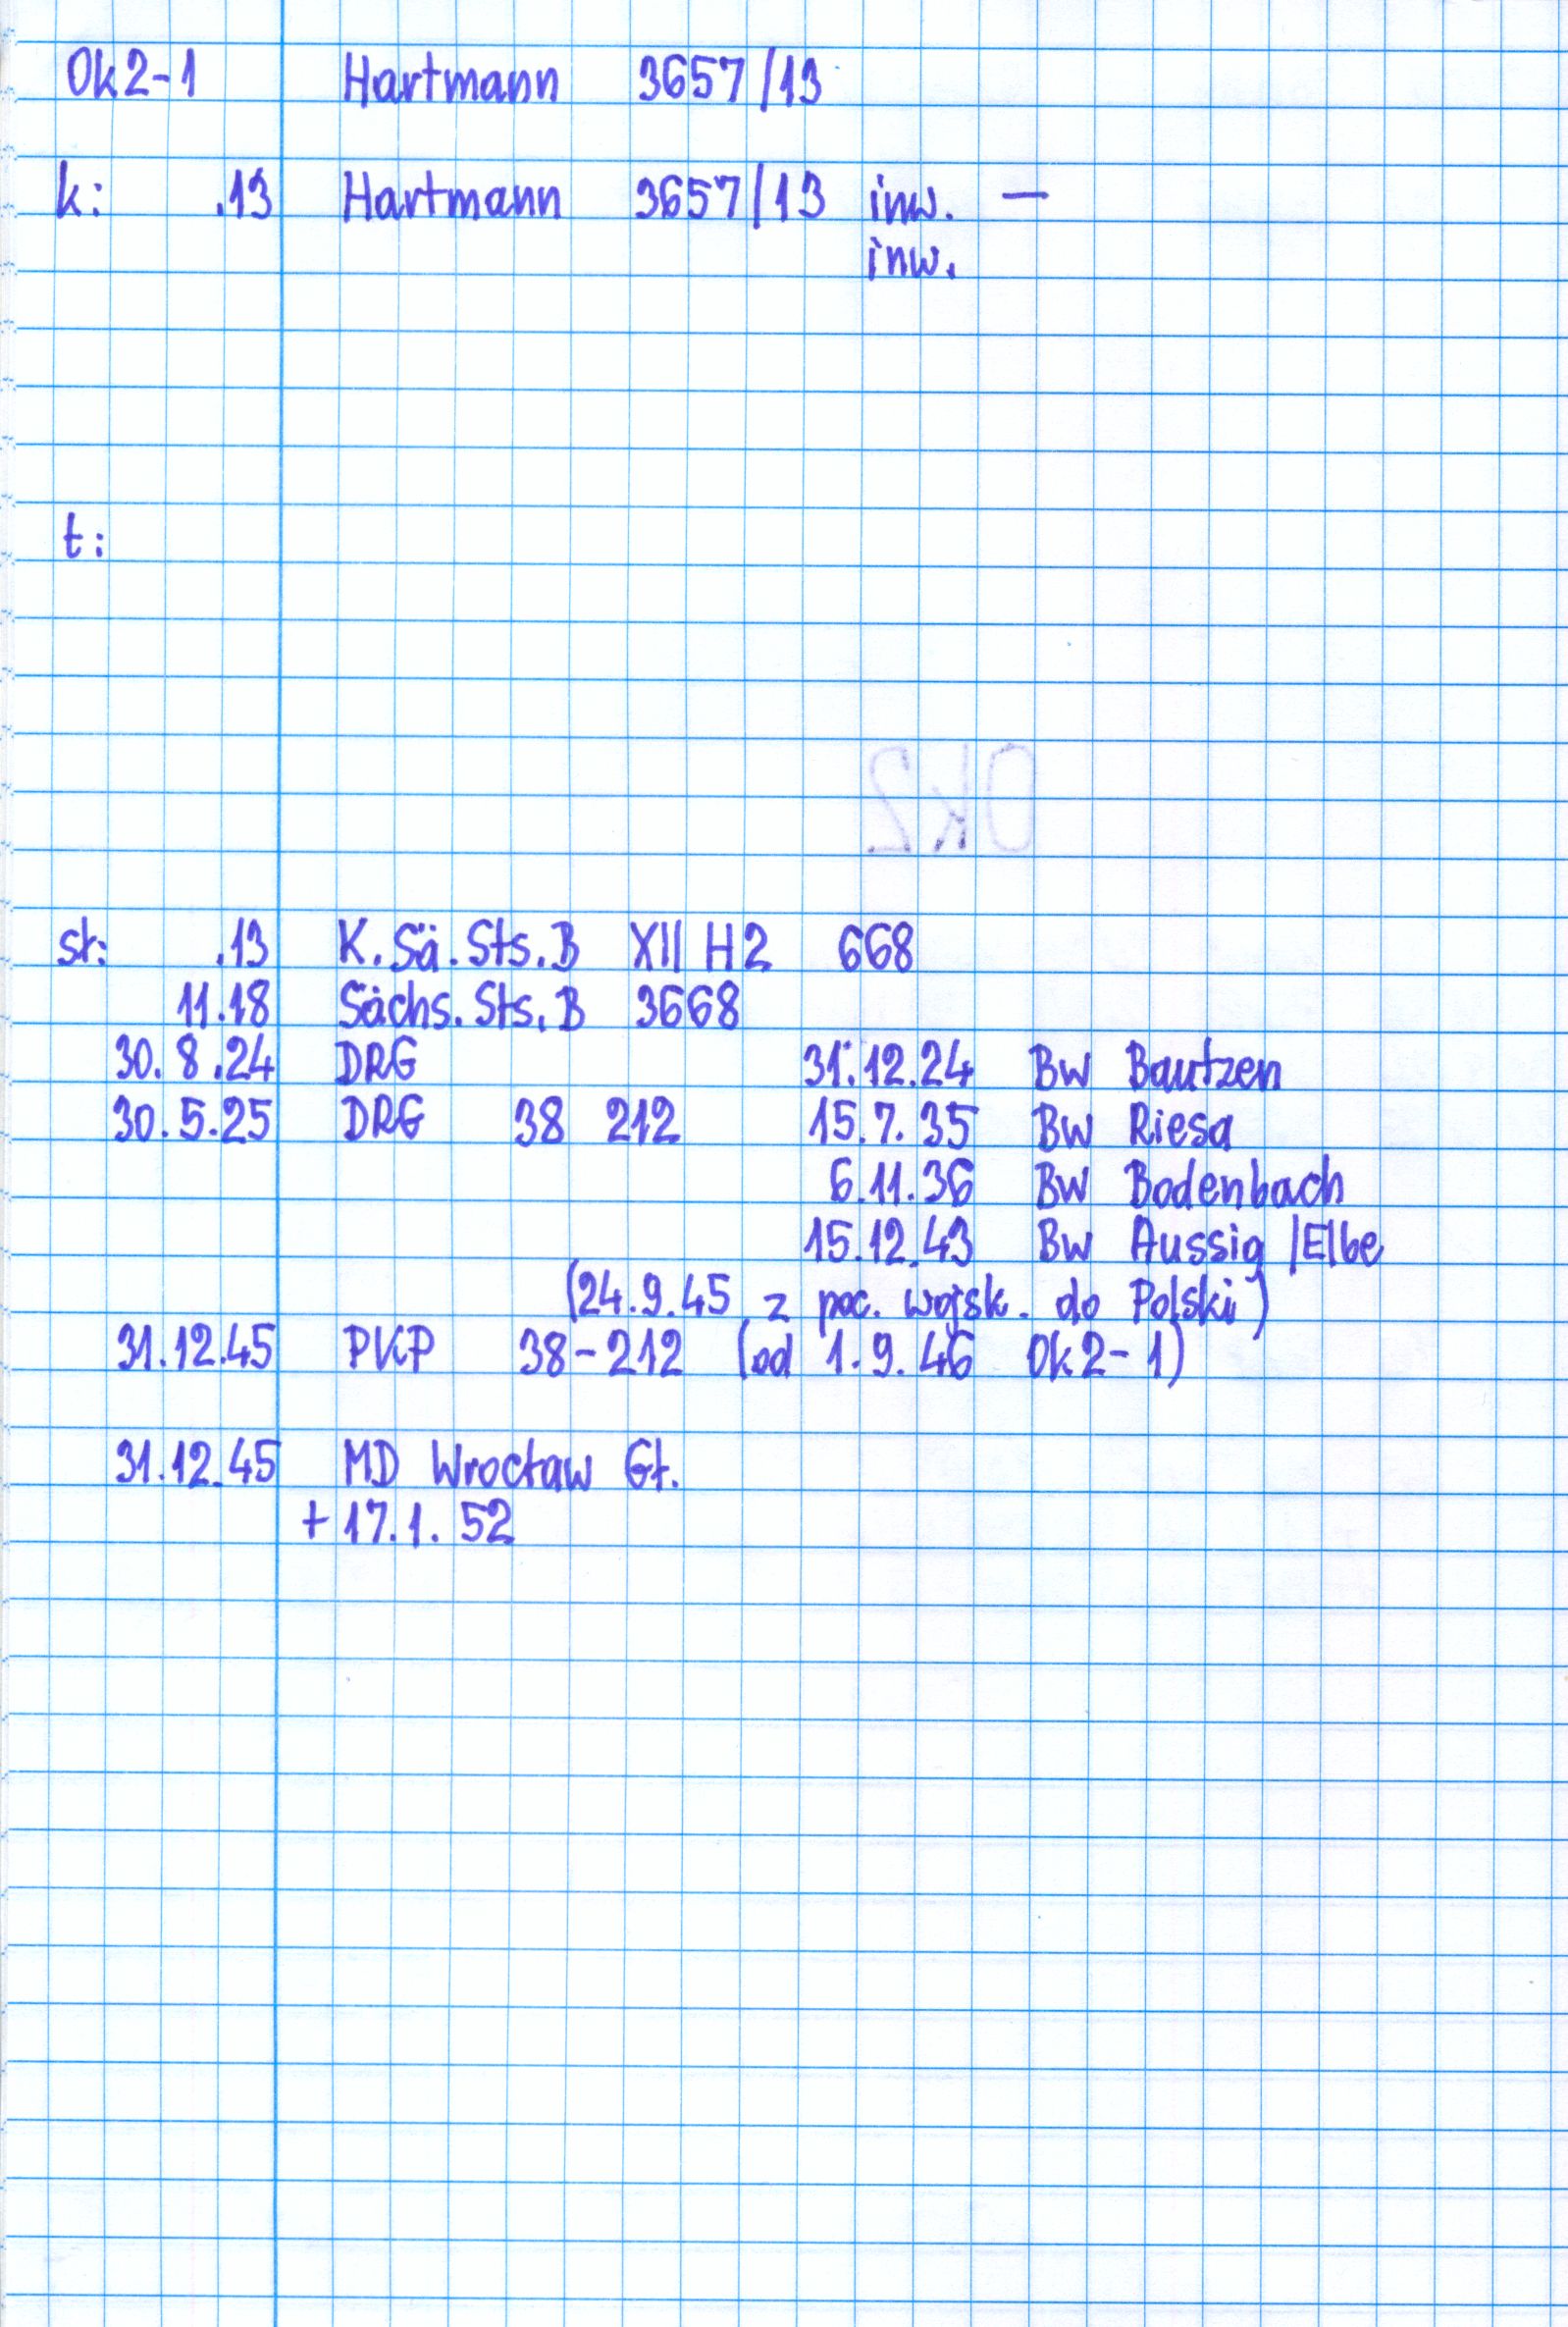 Ok2-1 Hartmann 3657/13
k: .13 Hartmann 3657/13 inw. —
inw.
t:
Ok2
st: .13 K.Sä.Sts.B XII H2 668
11.18 Sächs.Sts.B 3668
30.8.24 DRG 31.12.24 Bw Bautzen
30.5.25 DRG 38 212 15.7.35 Bw Riesa
6.11.36 Bw Bodenbach
15.12.43 Bw Aussig /Elbe
(24.9.45 z poc. wojsk. do Polski)
31.12.45 PKP 38-212 (od 1.9.46 Ok2-1)
31.12.45 MD Wrocław Gł.
+ 17.1.52